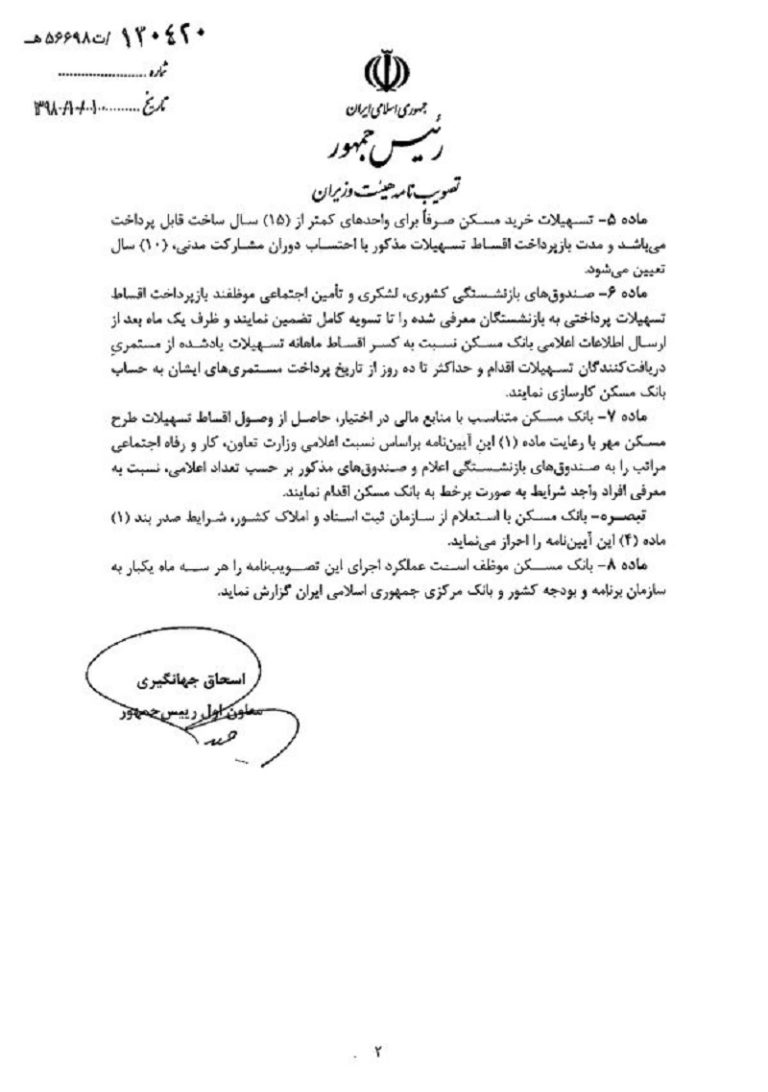 ۱۳۰۴۲۰ /ت۵۶۶۹۸هـ
شماره ......................
تاریخ ..........۱۳۹۸/۱۰/۰۱
جمهوری اسلامی ایران
رئیس جمهور
تصویب نامه هیئت وزیران
ماده ۵- تسهیلات خرید مسکن صرفاً برای واحدهای کمتر از (۱۵) سال ساخت قابل پرداخت
می‌باشد و مدت بازپرداخت اقساط تسهیلات مذکور با احتساب دوران مشارکت مدنی، (۱۰) سال
تعیین می‌شود.
ماده ۶- صندوق‌های بازنشستگی کشوری، لشکری و تأمین اجتماعی موظفند بازپرداخت اقساط
تسهیلات پرداختی به بازنشستگان معرفی شده را تا تسویه کامل تضمین نمایند و ظرف یک ماه بعد از
ارسال اطلاعات اعلامی بانک مسکن نسبت به کسر اقساط ماهانه تسهیلات یادشده از مستمری
دریافت‌کنندگان تسهیلات اقدام و حداکثر تا ده روز از تاریخ پرداخت مستمری‌های ایشان به حساب
بانک مسکن کارسازی نمایند.
ماده ۷- بانک مسکن متناسب با منابع مالی در اختیار، حاصل از وصول اقساط تسهیلات طرح
مسکن مهر با رعایت ماده (۱) این آیین‌نامه براساس نسبت اعلامی وزارت تعاون، کار و رفاه اجتماعی
مراتب را به صندوق‌های بازنشستگی اعلام و صندوق‌های مذکور بر حسب تعداد اعلامی، نسبت به
معرفی افراد واجد شرایط به صورت برخط به بانک مسکن اقدام نمایند.
تبصره- بانک مسکن با استعلام از سازمان ثبت اسناد و املاک کشور، شرایط صدر بند (۱)
ماده (۴) این آیین‌نامه را احراز می‌نماید.
ماده ۸- بانک مسکن موظف است عملکرد اجرای این تصویب‌نامه را هر سه ماه یکبار به
سازمان برنامه و بودجه کشور و بانک مرکزی جمهوری اسلامی ایران گزارش نماید.
اسحاق جهانگیری
معاون اول رییس‌جمهور
۲